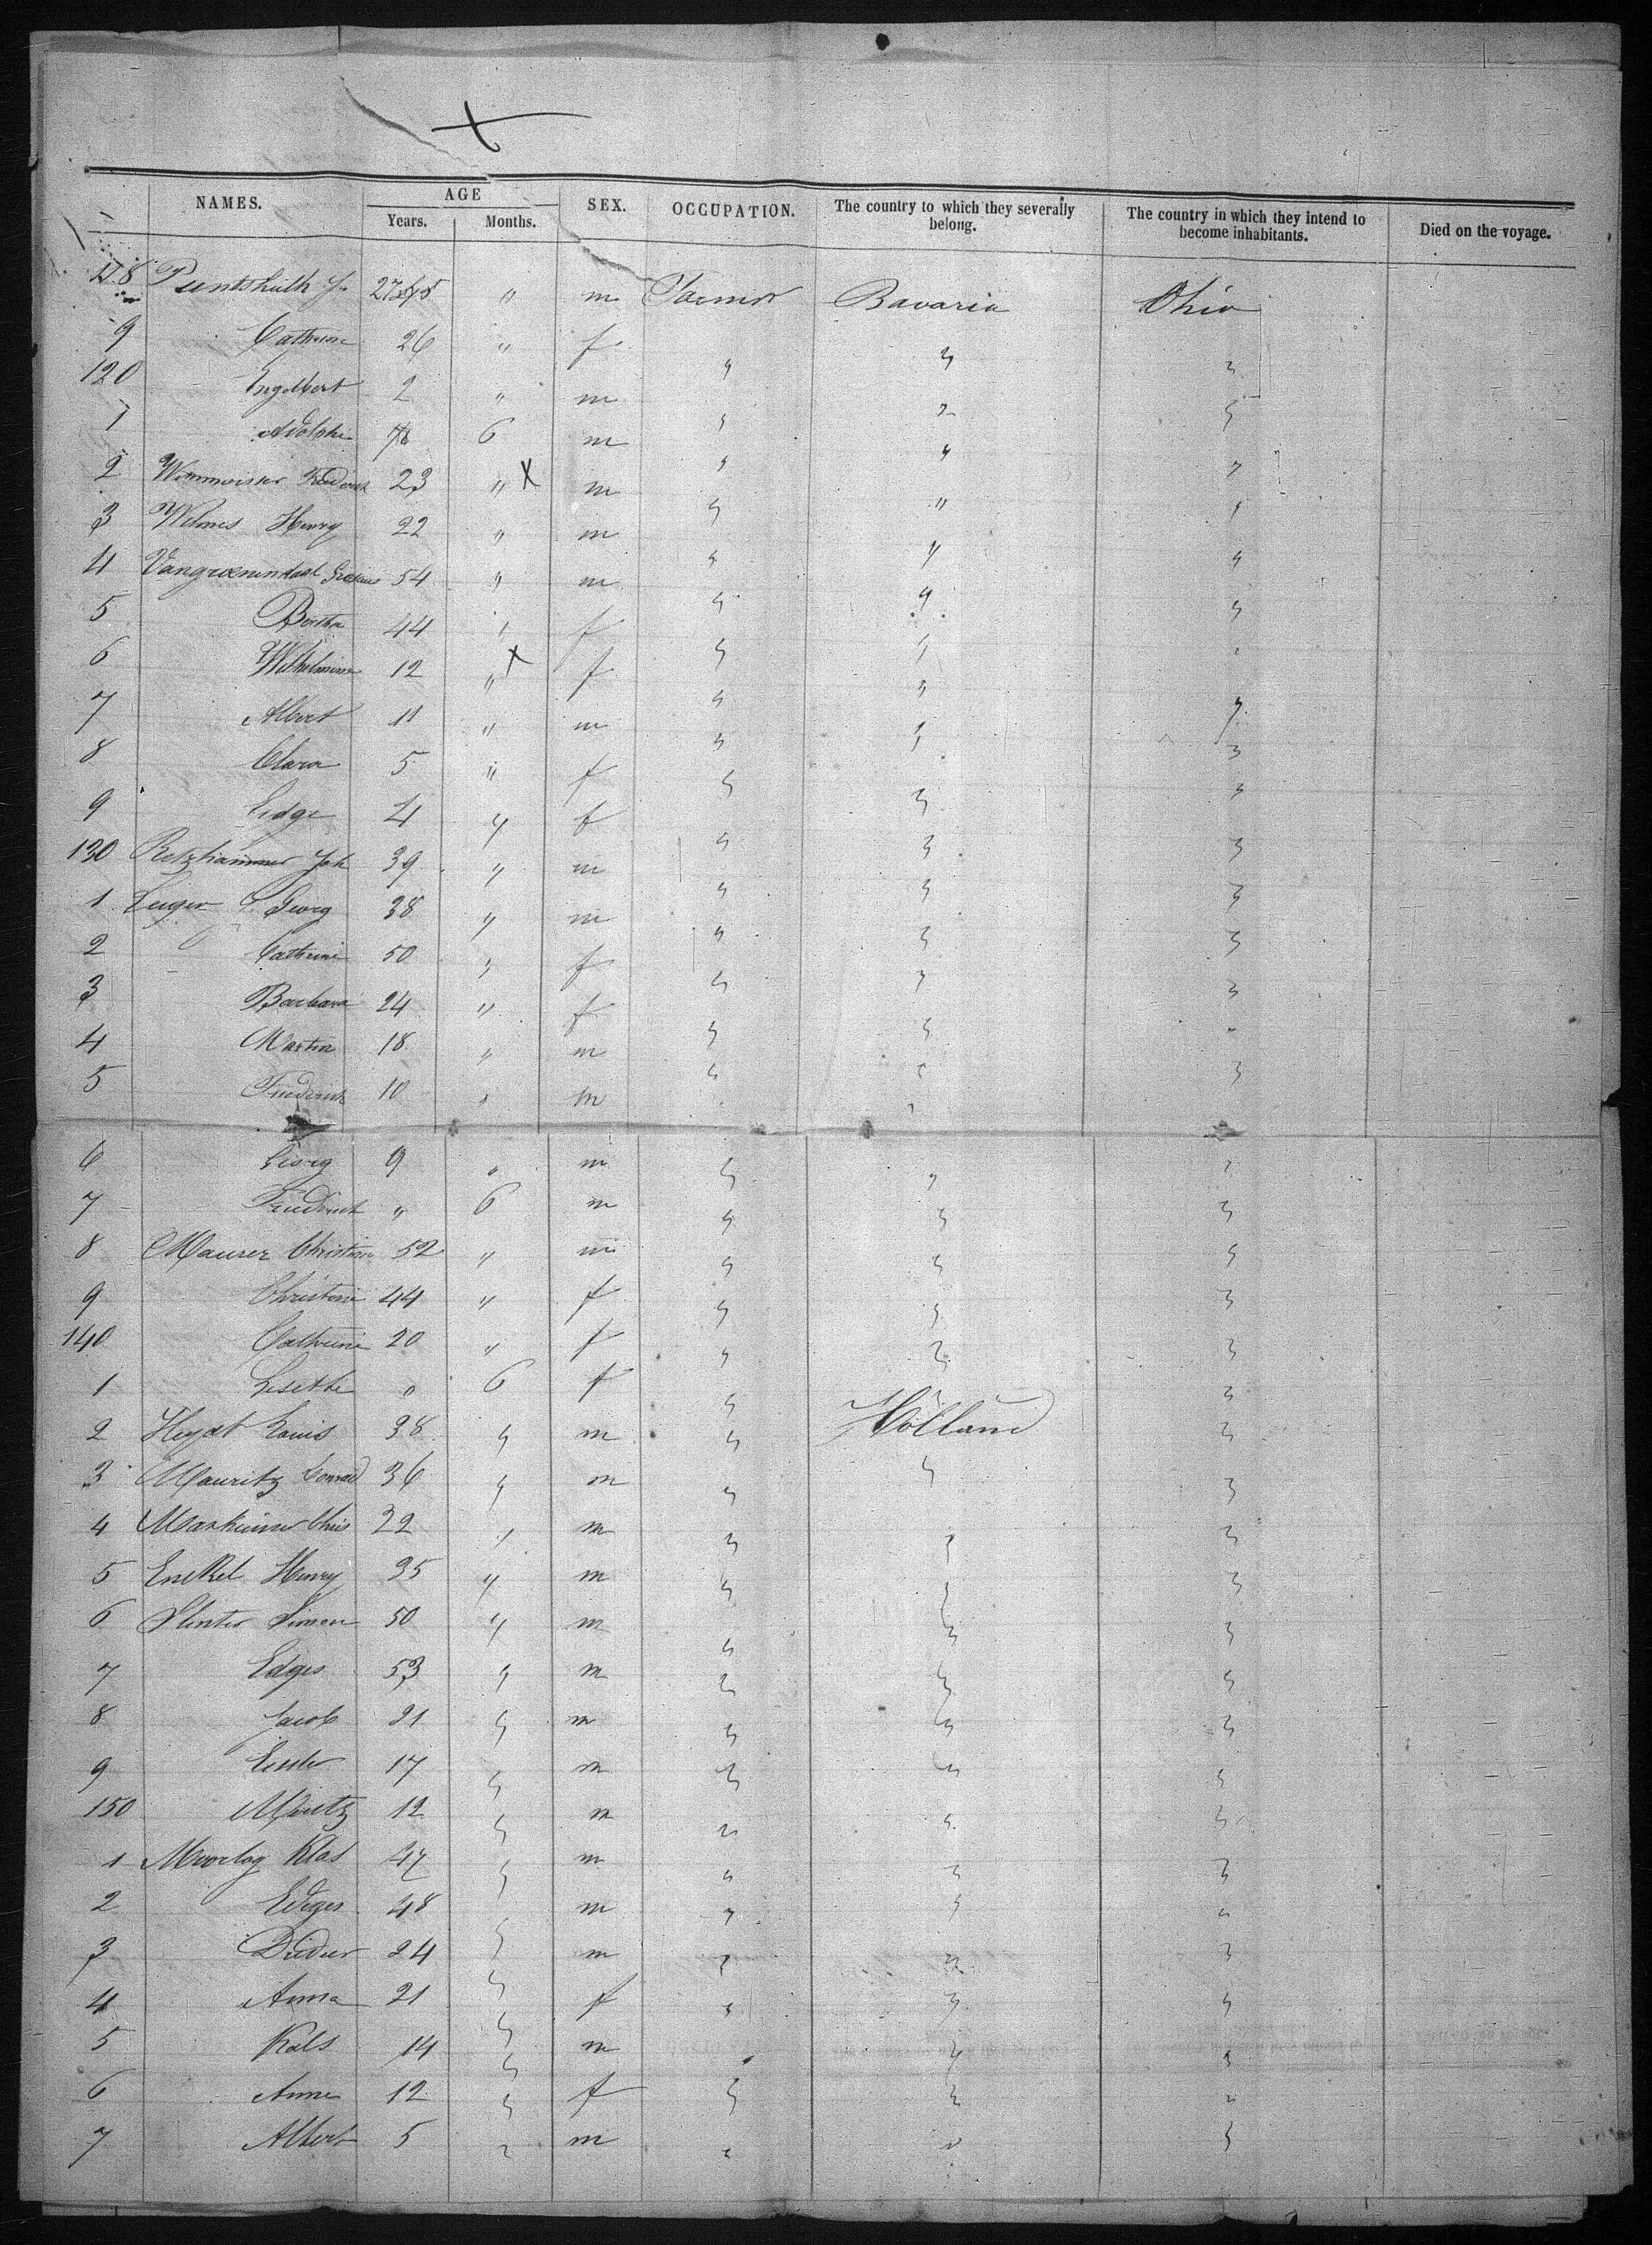 NAMES. AGE SEX. OCCUPATION. The country to which they severally belong. The country in which they intend to become inhabitants. Died on the voyage.
Years. Months.
118 m Farmer Bavaria Ohio
9 Catherine 26 " f " " "
120 Engelbert 2 " m " " "
1 Adolphe 6 m " " "
2 23 " X m " " "
3 Wilmes Henry 22 " m " " "
4 Vangroenendaal 54 " m " " "
5 Bertha 44 " f " " "
6 Wilhelmine 12 " X f " " "
7 Albert 11 " m " " "
8 Clara 5 " f " " "
9 4 " f " " "
130 Retzhammer Joh 39 " m " " "
1 Georg 38 " m " " "
2 Catherine 50 " f " " "
3 Barbara 24 " f " " "
4 Martin 18 " m " " "
5 Friedrich 10 " m " "
6 Georg 9 " m " " "
7 Friedrich " 6 m " " "
8 Maurer Christian 52 " m " " "
9 Christine 44 " f " " "
140 Catherine 20 " f " " "
1 Lisette " 6 f " " "
2 Heydt Louis 38 " m " Holland "
3 Mauritz Conrad 36 " m " " "
4 Chris 22 " m " " "
5 Enekel Henry 35 " m " " "
6 Simon 50 " m " " "
7 Edges 53 " m " " "
8 Jacob 21 " m " " "
9 17 " m " " "
150 Moritz 12 " m " " "
1 Klas 47 " m " " "
2 Ediges 48 " m " " "
3 24 " m " " "
4 Anna 21 " f " " "
5 Kals 14 " m " " "
6 Anne 12 " f " " "
7 Albert 5 " m " " "